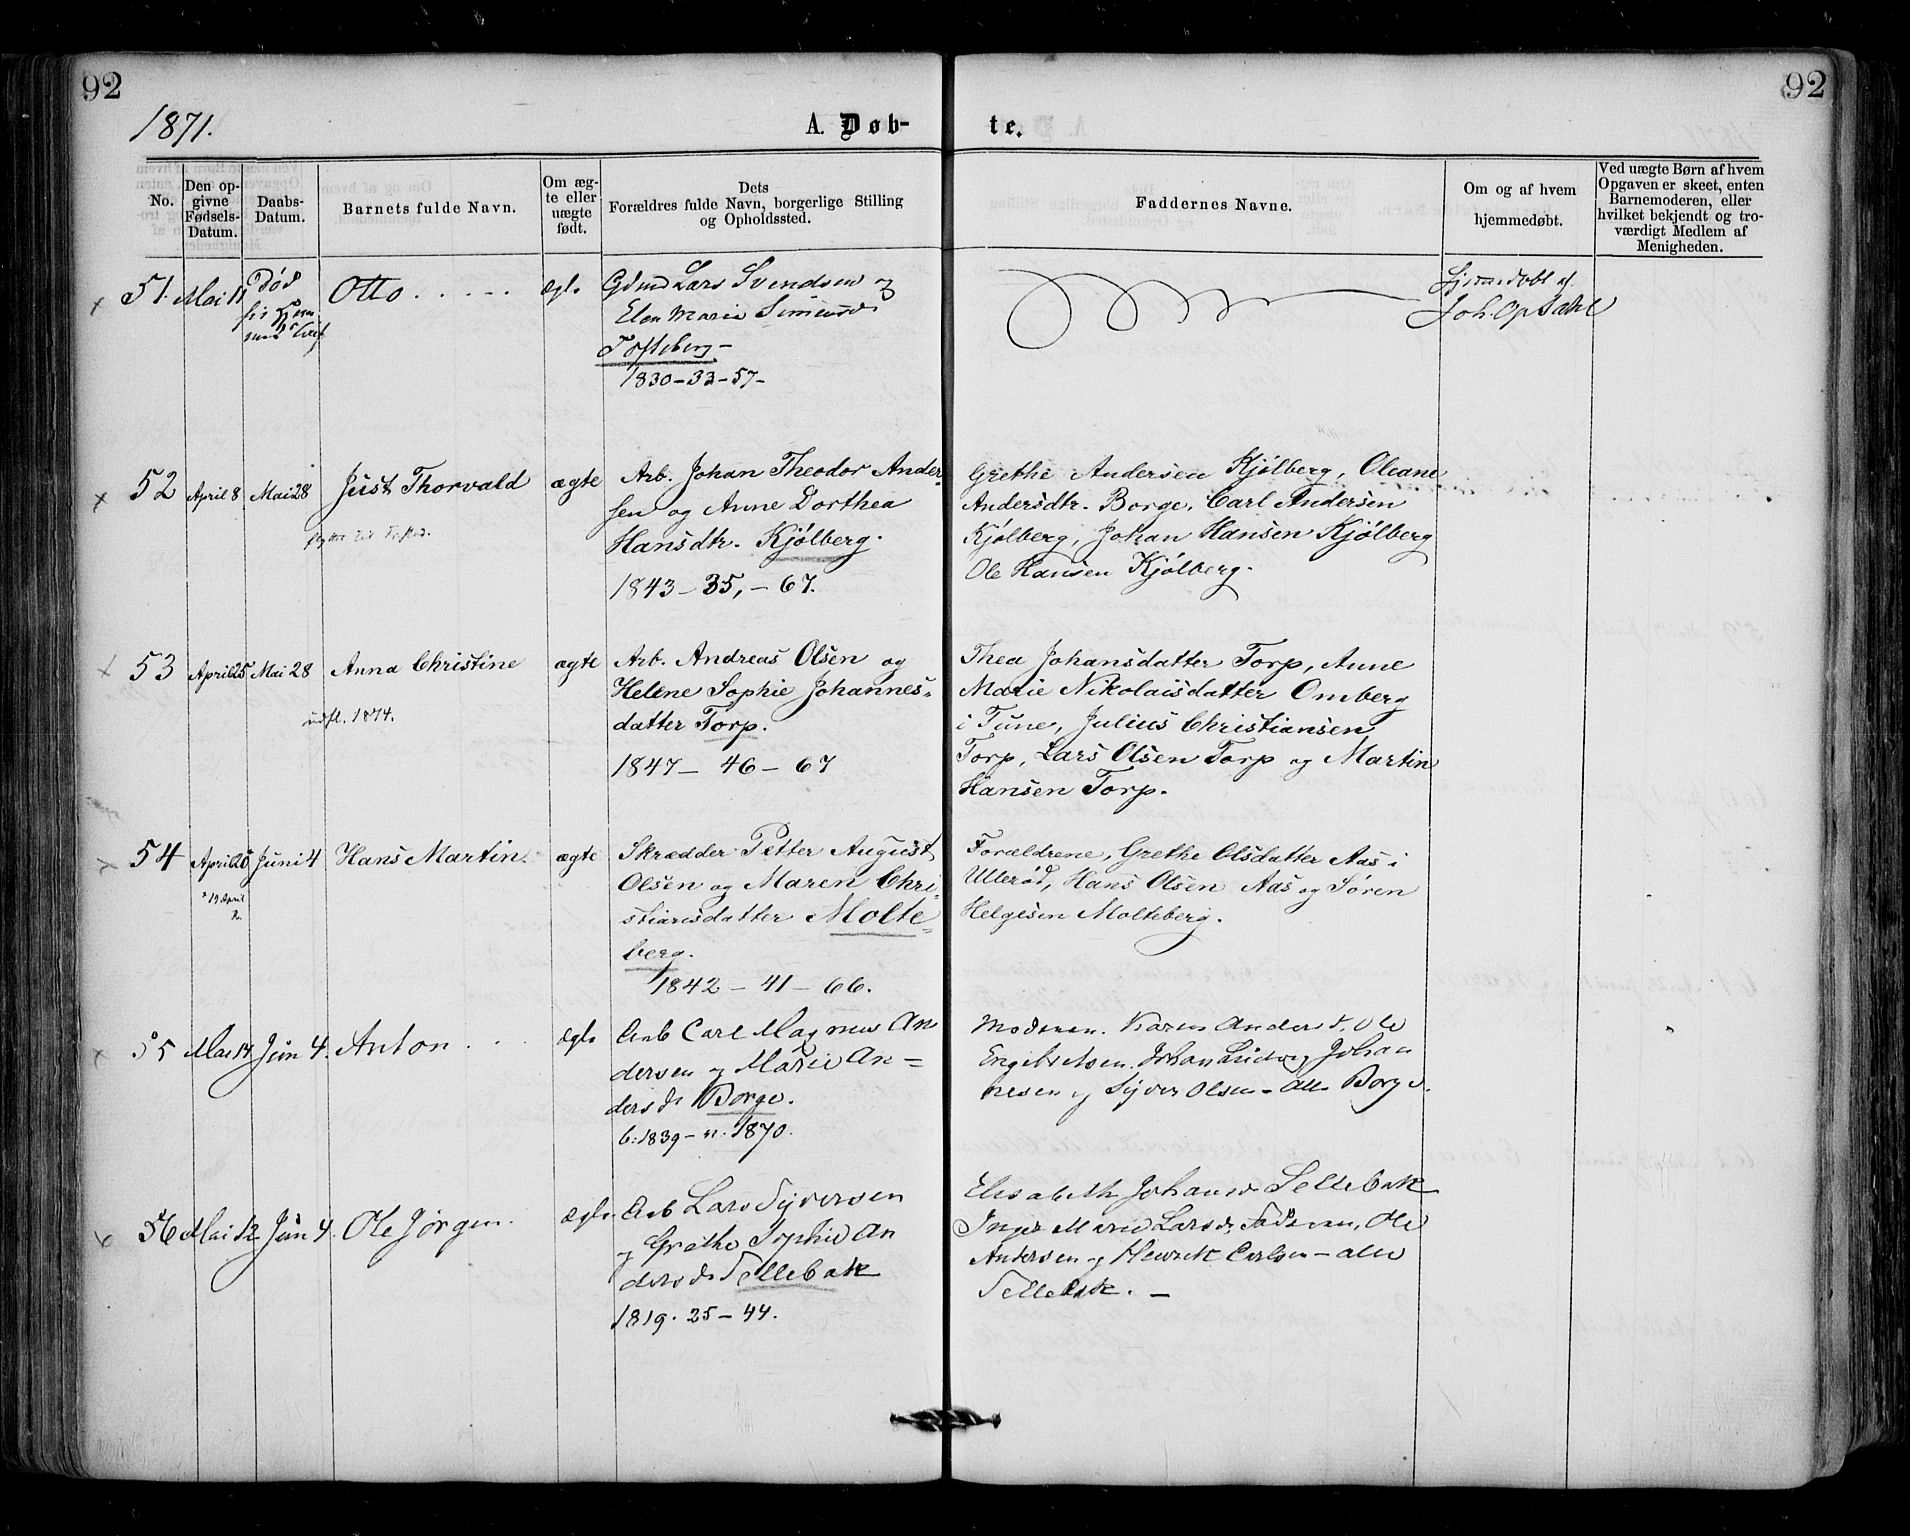 92
92
1871.
A. Døb-
te.
No.
Den op-
givne
Fødsels-
Datum.
Daabs-
Datum.
Barnets fulde Navn.
Om æg-
te eller
uægte
født.
Dets
Forældres fulde Navn, borgerlige Stilling
og Opholdssted.
Faddernes Navne.
Om og af hvem
hjemmedøbt.
Ved uægte Børn af hvem
Opgaven er skeet, enten
Barnemoderen, eller
hvilket bekjendt og tro-
værdigt Medlem af
Menigheden.
51. Mai 11
Død
Otto
ægte
Gdmd Lars Svendsen og
Elen Marie Simensd.
Tofteberg
1830-33-57-
Hjemmedøbt af
Joh. Opdahl
52
April 8
Mai 28
Just Thorvald
ægte
Arb. Johan Theodor Ander-
sen og Anne Dorthea
Hansdtr. Kjølberg.
1843-35,-67.
Grethe Andersen Kjølberg, Oleane
Andersdtr. Borge, Carl Andersen
Kjølberg, Johan Hansen Kjølberg
Ole Hansen Kjølberg.
53
April 25
Mai 28
Anna Christine
udfl. 1874.
ægte
Arb. Andreas Olsen og
Helene Sophie Johannes-
datter Torp.
1847-46-67
Thea Johansdatter Torp, Anne
Marie Nikolaisdatter Omberg
i Tune, Julius Christiansen
Torp, Lars Olsen Torp og Martin
Hansen Torp.
54
April 20
19 April
Juni 4
Hans Martin.
ægte
Skrædder Petter August
Olsen og Maren Chri-
stiansdatter Molte-
berg.
1842-41-66.
Forældrene, Grethe Olsdatter Aas i
Ullerød, Hans Olsen Aas og Søren
Helgesen Molteberg.
55
Mai 14
Jun 4.
Anton
ægte
Arb Carl Magnus An
dersen og Marie An-
dersdr Borge.
b: 1839-n: 1870.
Moderen. Karen Andersd. Ole
Engebretsen. Johan Ludvig Johan
nesen og Syver Olsen - alle Borge.
56
Mai 12
Jun 4.
Ole Jørgen.
ægte
Arb Lars Syversen
og Grethe Sophie An
dersdr Sellebak
1819. 25-44.
Elisabeth Johansd Sellebak
Inger Marie Larsdr, Ole
Andersen og Henrik Carlsen - alle
Sellebak. -